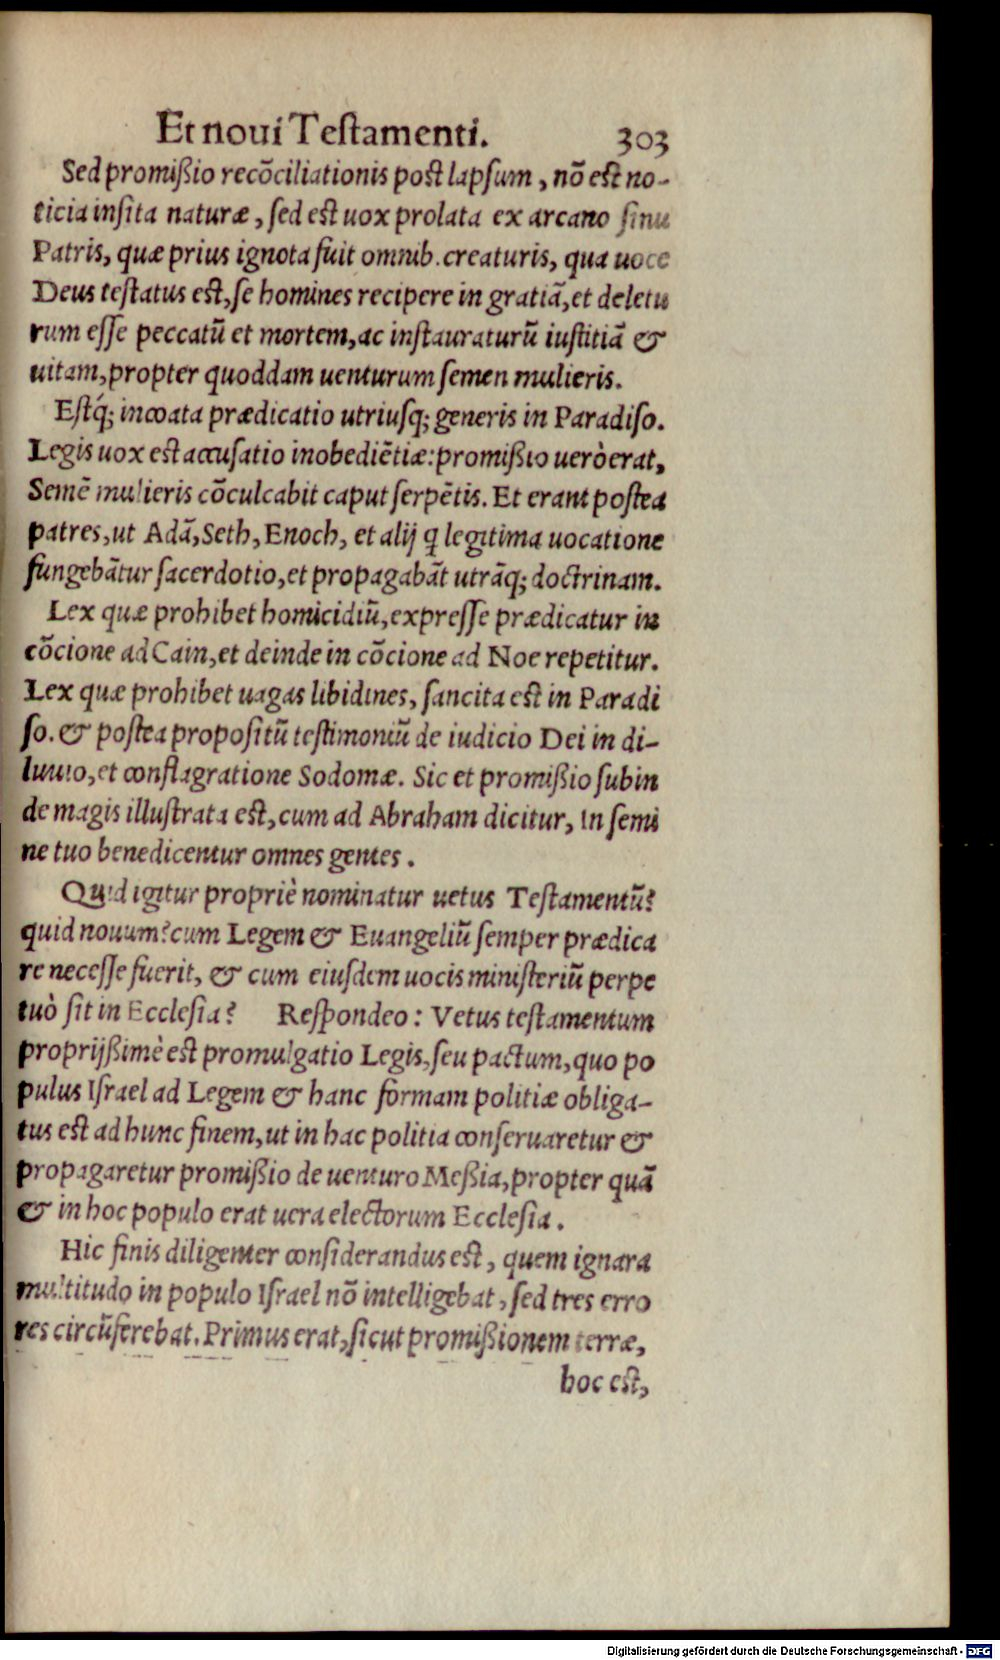 Et noui Testamenti. 303
Sed promißio recõciliationis post lapsum, nõ est no-
ticia insita naturæ, sed est uox prolata ex arcano sinu
Patris, quæ prius ignota fuit omnib. creaturis, qua uoce
Deus testatus est, se homines recipere in gratiã, et deletu
rum esse peccatũ et mortem, ac instauraturũ iustitiã &
uitam, propter quoddam uenturum semen mulieris.
Estq́; incoata prædicatio utriusq; generis in Paradiso.
Legis uox est accusatio inobediẽtiæ: promißio uerò erat,
Semẽ mulieris cõculcabit caput serpẽtis. Et erant postea
patres, ut Adã, Seth, Enoch, et alij q̃ legitima uocatione
fungebãtur sacerdotio, et propagabãt utrãq; doctrinam.
Lex quæ prohibet homicidiũ, expresse prædicatur in
cõcione ad Cain, et deinde in cõcione ad Noe repetitur.
Lex quæ prohibet uagas libidines, sancita est in Paradi
so. & postea propositũ testimoniũ de iudicio Dei in di-
luuio, et conflagratione Sodomæ. Sic et promißio subin
de magis illustrata est, cum ad Abraham dicitur, In semi
ne tuo benedicentur omnes gentes.
Quid igitur propriè nominatur uetus Testamentũ?
quid nouum? cum Legem & Euangeliũ semper prædica
re necesse fuerit, & cum eiusdem uocis ministeriũ perpe
tuò sit in Ecclesia? Respondeo: Vetus testamentum
proprijßimè est promulgatio Legis, seu pactum, quo po
pulus Israel ad Legem & hanc formam politiæ obliga-
tus est ad hunc finem, ut in hac politia conseruaretur &
propagaretur promißio de uenturo Meßia, propter quã
& in hoc populo erat uera electorum Ecclesia.
Hic finis diligenter considerandus est, quem ignara
multitudo in populo Israel nõ intelligebat, sed tres erro
res circũferebat. Primus erat, sicut promißionem terræ,
hoc est,
Digitalisierung gefördert durch die Deutsche Forschungsgemeinschaft - DFG